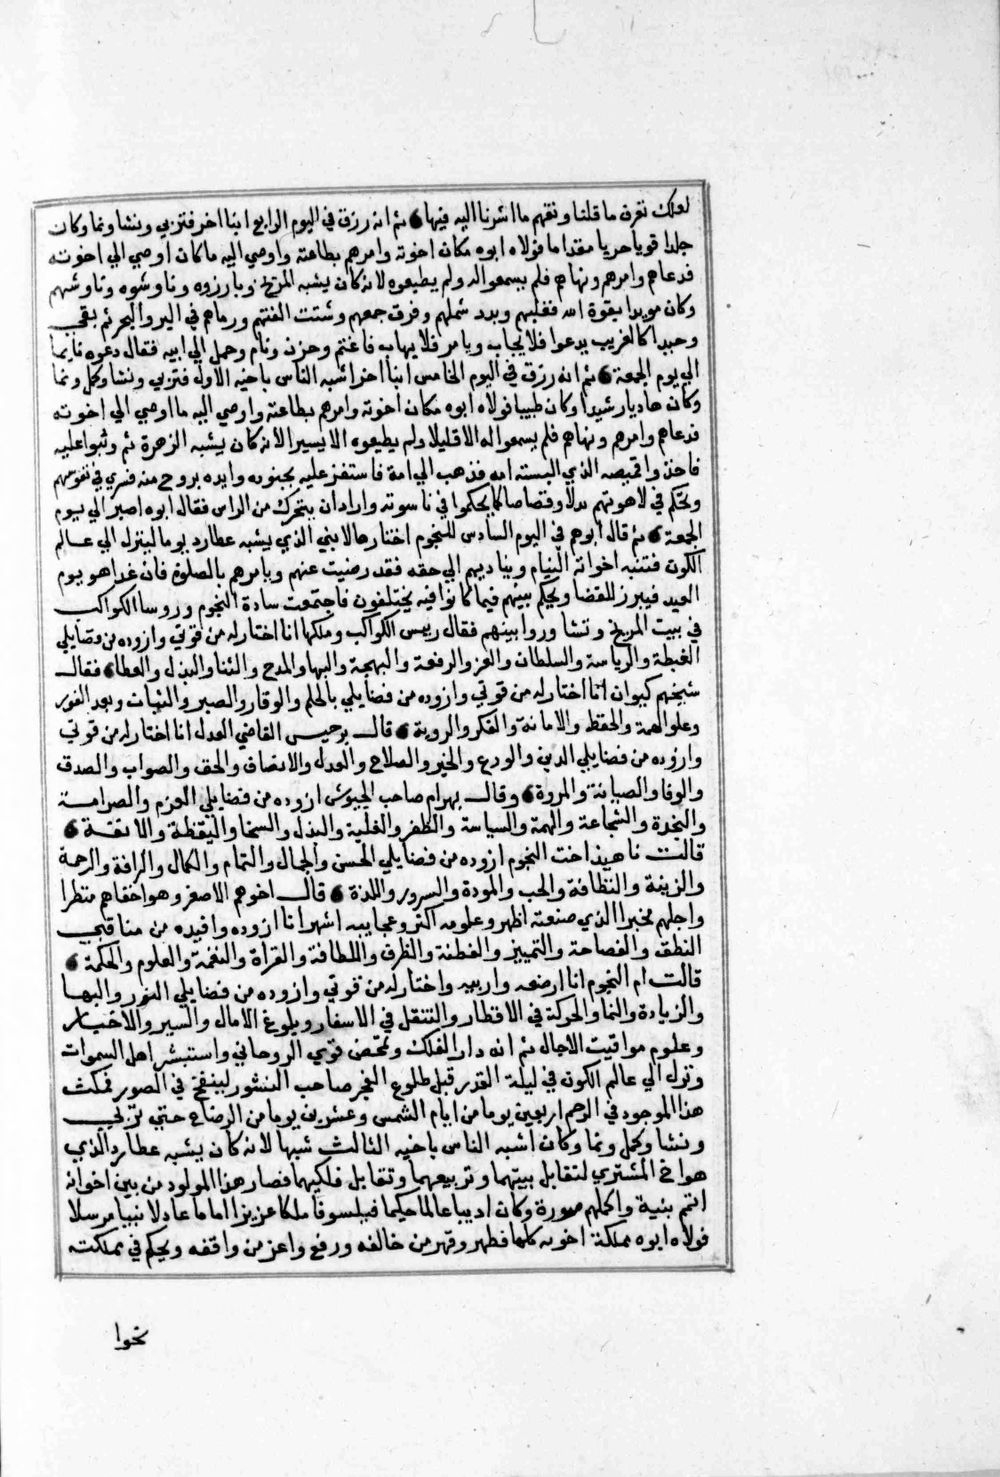 لعلك تعرف ما قلنا وتفهم ما اشرنا اليه فيها ثم انه رزق في اليوم الرابع ابنا اخر فتربي ونشا ونما وكان
جلدا قويا حربا مقداما فولاه ابوه مكان اخوته وامرهم بطاعته واوصي اليه ما كان اوصي الي اخوته
فدعاهم وامرهم ونهاهم فلم يسمعوا له ولم يطيعوه لانه كان يشبه المريخ وبارزوه وناوشوه وناوشهم
وكان مويدا بقوة الله فغلبهم وبدد شملهم وفرق جمعهم وشتت الفتهم ورماهم في البر والبحر ثم بقي
وحيدا كالغريب يدعوا فلا يجاب ويامر فلا يهاب فاغتم وحزن ونام وحمل الي ابيه فقال دعوه نايما
الي يوم الجمعة ثم انه رزق في اليوم الخامس ابنا اخر اشبه الناس باخيه الاول فتربي ونشا وكمل ونما
وكان هاديا رشيدا وكان طبيبا فولاه ابوه مكان اخوته وامرهم بطاعته واوصي اليه ما اوصي الي اخوته
فدعاهم وامرهم ونهاهم فلم يسمعوا له الا قليلا ولم يطيعوه الا يسيرا لانه كان يشبه الزهرة ثم وثبوا عليه
فاخذوا قميصه الذي البسته امه فذهب الي امه فاستفز عليه بجنوده وايده بروح منه فسري في نفوسهم
وتحكم في لاهوتهم بدلا وقصاصا كما يحكموا في ناسوته واراد ان يتحرك من الراس فقال ابوه اصبر الي يوم
الجمعة ثم قال ابوهم في اليوم السادس للنجوم اختارها لابني الذي يشبه عطارد يوما لينزل الي عالم
الكون فتنبه اخوانه النيام ويناديهم الي حقه فقد رضيت عنهم ويامرهم بالصلوة فان غدا هو يوم
العيد فيبرز للقضا ويحكم بينهم فيما كانوا فيه يختلفون فاجتمعت سادة النجوم وروسا الكواكب
في بيت المريخ وتشاوروا بينهم فقال رييس الكواكب وملكها انا اختار له من قوتي وازوده من فضايلي
الغبطة والرياسة والسلطان والعز والرفعة والبهجة والبها والمدح والثنا والبذل والعطا فقال
شيخهم كيوان انا اختار له من قوتي وازوده من فضايلي بالحلم والوقار والصبر والثبات وبعد الغور
وعلو الهمة والحفظ والامانة والفكر والروية قال برجيس القاضي العدل انا اختار له من قوتي
وازوده من فضايلي الدين والورع والخير والصلاح والعدل والانصاف والحق والصواب والصدق
والوفا والصيانة والمروة وقال بهرام صاحب الجيوش ازوده من فضايلي العزم والصرامة
والنجدة والشجاعة والهمة والسياسة والظفر والغلبة والبذل والسخا واليقظة والانفة
قالت ناهيذ اخت النجوم ازوده من فضايلي الحسن والجمال والتمام والكمال والرافة والرحمة
والزينة والنظافة والحب والمودة والسرور واللذة قال اخوهم الاصغر وهو اخفاهم منظرا
واجلهم مخبرا الذي صنعته اظهر وعلومه اكثر وعجايبه اشهر انا ازوده وافيده من مناقبي
النطق والفصاحة والتمييز والفطنة والظرف واللطافة والقراة والنغمة والعلوم والحكمة
قالت ام النجوم انا ارضعه واربيه واختار له من قوتي وازوده من فضايلي النور والبها
والزيادة والنما والحركة في الاقطار والتنقل في الاسفار وبلوغ الامال والسير والاخبار
وعلوم مواقيت الاجال ثم انه دار الفلك وتمخض قوي الروحاني واستبشر اهل السموات
ونزل الي عالم الكون في ليلة القدر قبل طلوع الفجر صاحب النشور لينفخ في الصور فمكث
هذا الموجود في الرحم اربعين يوما من ايام الشمس وعشرين يوما من الرضاع حتي تربي
ونشا وكمل ونما وكان اشبه الناس باخيه الثالث شبها لانه كان يشبه عطارد الذي
هو اخ المشتري لتقابل بيتهما وتربيعهما وتقابل فلكيهما فصار هذا المولود من بين اخوانه
اتم بنية واكملهم صورة وكان اديبا عالما حكيما فيلسوفا ملكا عزيزا اماما عادلا نبيا مرسلا
فولاه ابوه مملكة اخوته كلها فظهر وقهر من خالفه ورفع واعز من واقفه ويحكم في مملكته
نحوا